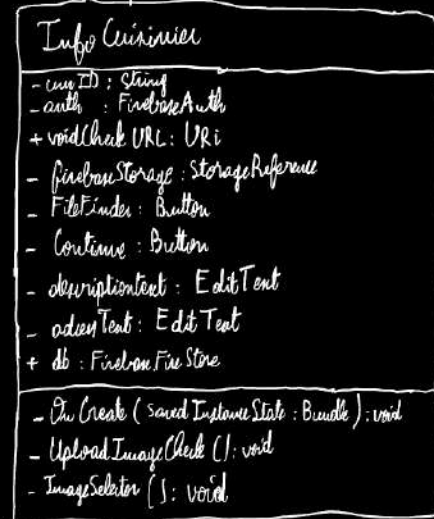 Info Cuisinier
- userID : String
- auth : FirebaseAuth
+ voidCheck URL : URi
- firebaseStorage : StorageReference
- FileFinder : Button
- Continue : Button
- descriptiontext : EditText
- adressText : EditText
+ db : FirebaseFireStore
- OnCreate ( saved InstanceState : Bundle ) : void
- UploadImageCheck () : void
- ImageSelector () : void